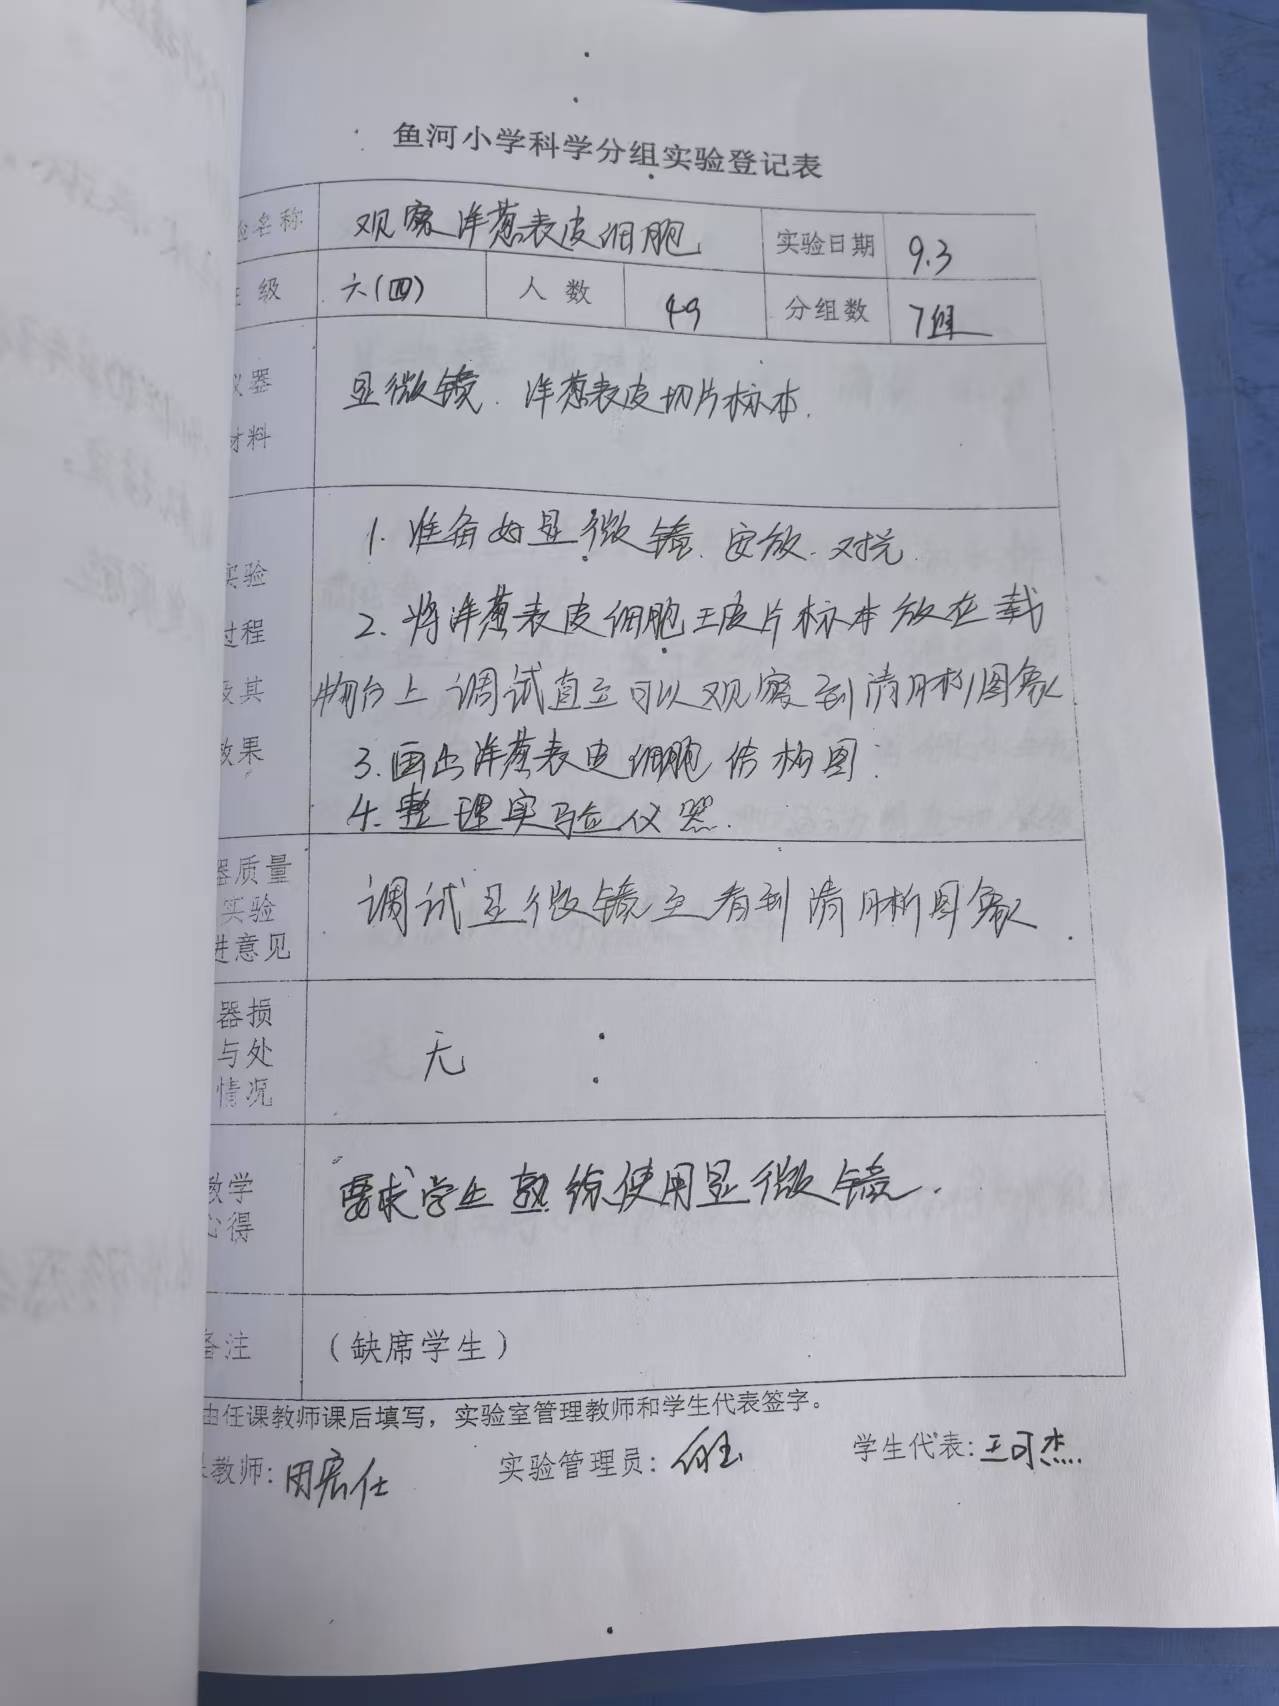 鱼河小学科学分组实验登记表
验名称 观察洋葱表皮细胞 实验日期 9.3
级 六(四) 人数 49 分组数 7组
仪器
材料
显微镜. 洋葱表皮切片标本.
实验
过程
及其
效果
1. 准备好显微镜、安放、对光.
2. 将洋葱表皮细胞 片标本放在载
物台上 调试直 可以观察到清晰图象.
3. 画出洋葱表皮细胞结构图.
4. 整理实验仪器.
器质量
实验
进意见
调试显微镜至看到清晰图象.
器损
与处
情况
无
教学
心得
要求学生熟练使用显微镜.
备注 (缺席学生)
由任课教师课后填写，实验室管理教师和学生代表签字。
教师: 周宏仕 实验管理员: 学生代表: 王可杰